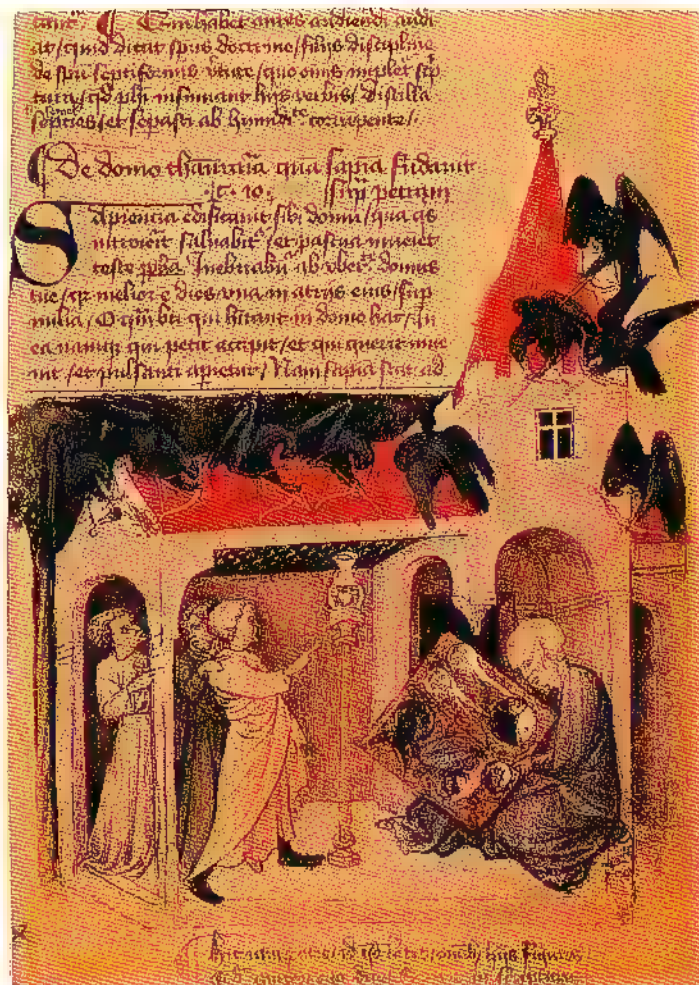 ¶ Qui habet aures audiendi audi
at / quid dicat spūs doctrine / filijs discipline
de spū septiformis v̄tute / quo oīns implet᷑ sc̄p
tura / qd phi insinuant hijs verbis / Distilla
septies / et sepasti ab humidte corrumpente /
De domo thesauraria qua sapīa fūdavit
sup petram
Sapiencia edificavit sibi domū / quā qs
introierit salvabit᷑ / et pascua inveniet
teste ppha Inebriabūt᷑ ab vbert᷑ domus
tue / qr melior ē dies vna in atrijs eius / sup
milia / O qm bti qui hitant in domo hac / In
ea namque qui petit accipit / et qui querit inve
nit / et pulsanti apietur / Nam sapīa stat ad
hijs figuris